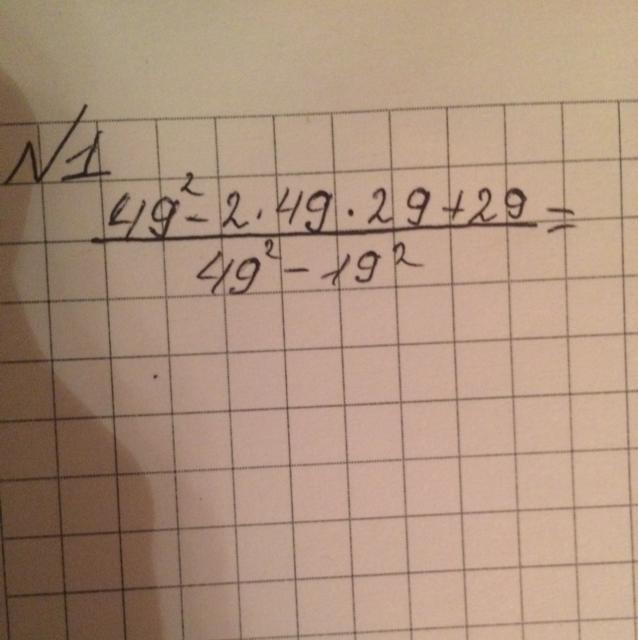 №1
49² - 2 · 49 · 29 + 29 =
49² - 19²